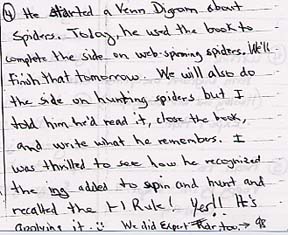 ④ He started a Venn Digram about
Spiders. Today, he used the book to
complete the side on web-spinning spiders. We'll
finish that tomorrow. We will also do
the side on hunting spiders but I
told him he'd read it, close the book,
and write what he remembers. I
was thrilled to see how he recognized
the ing added to spin and hunt and
recalled the 1-1-1 Rule! Yes!! It's
applying it. We did Expert too →